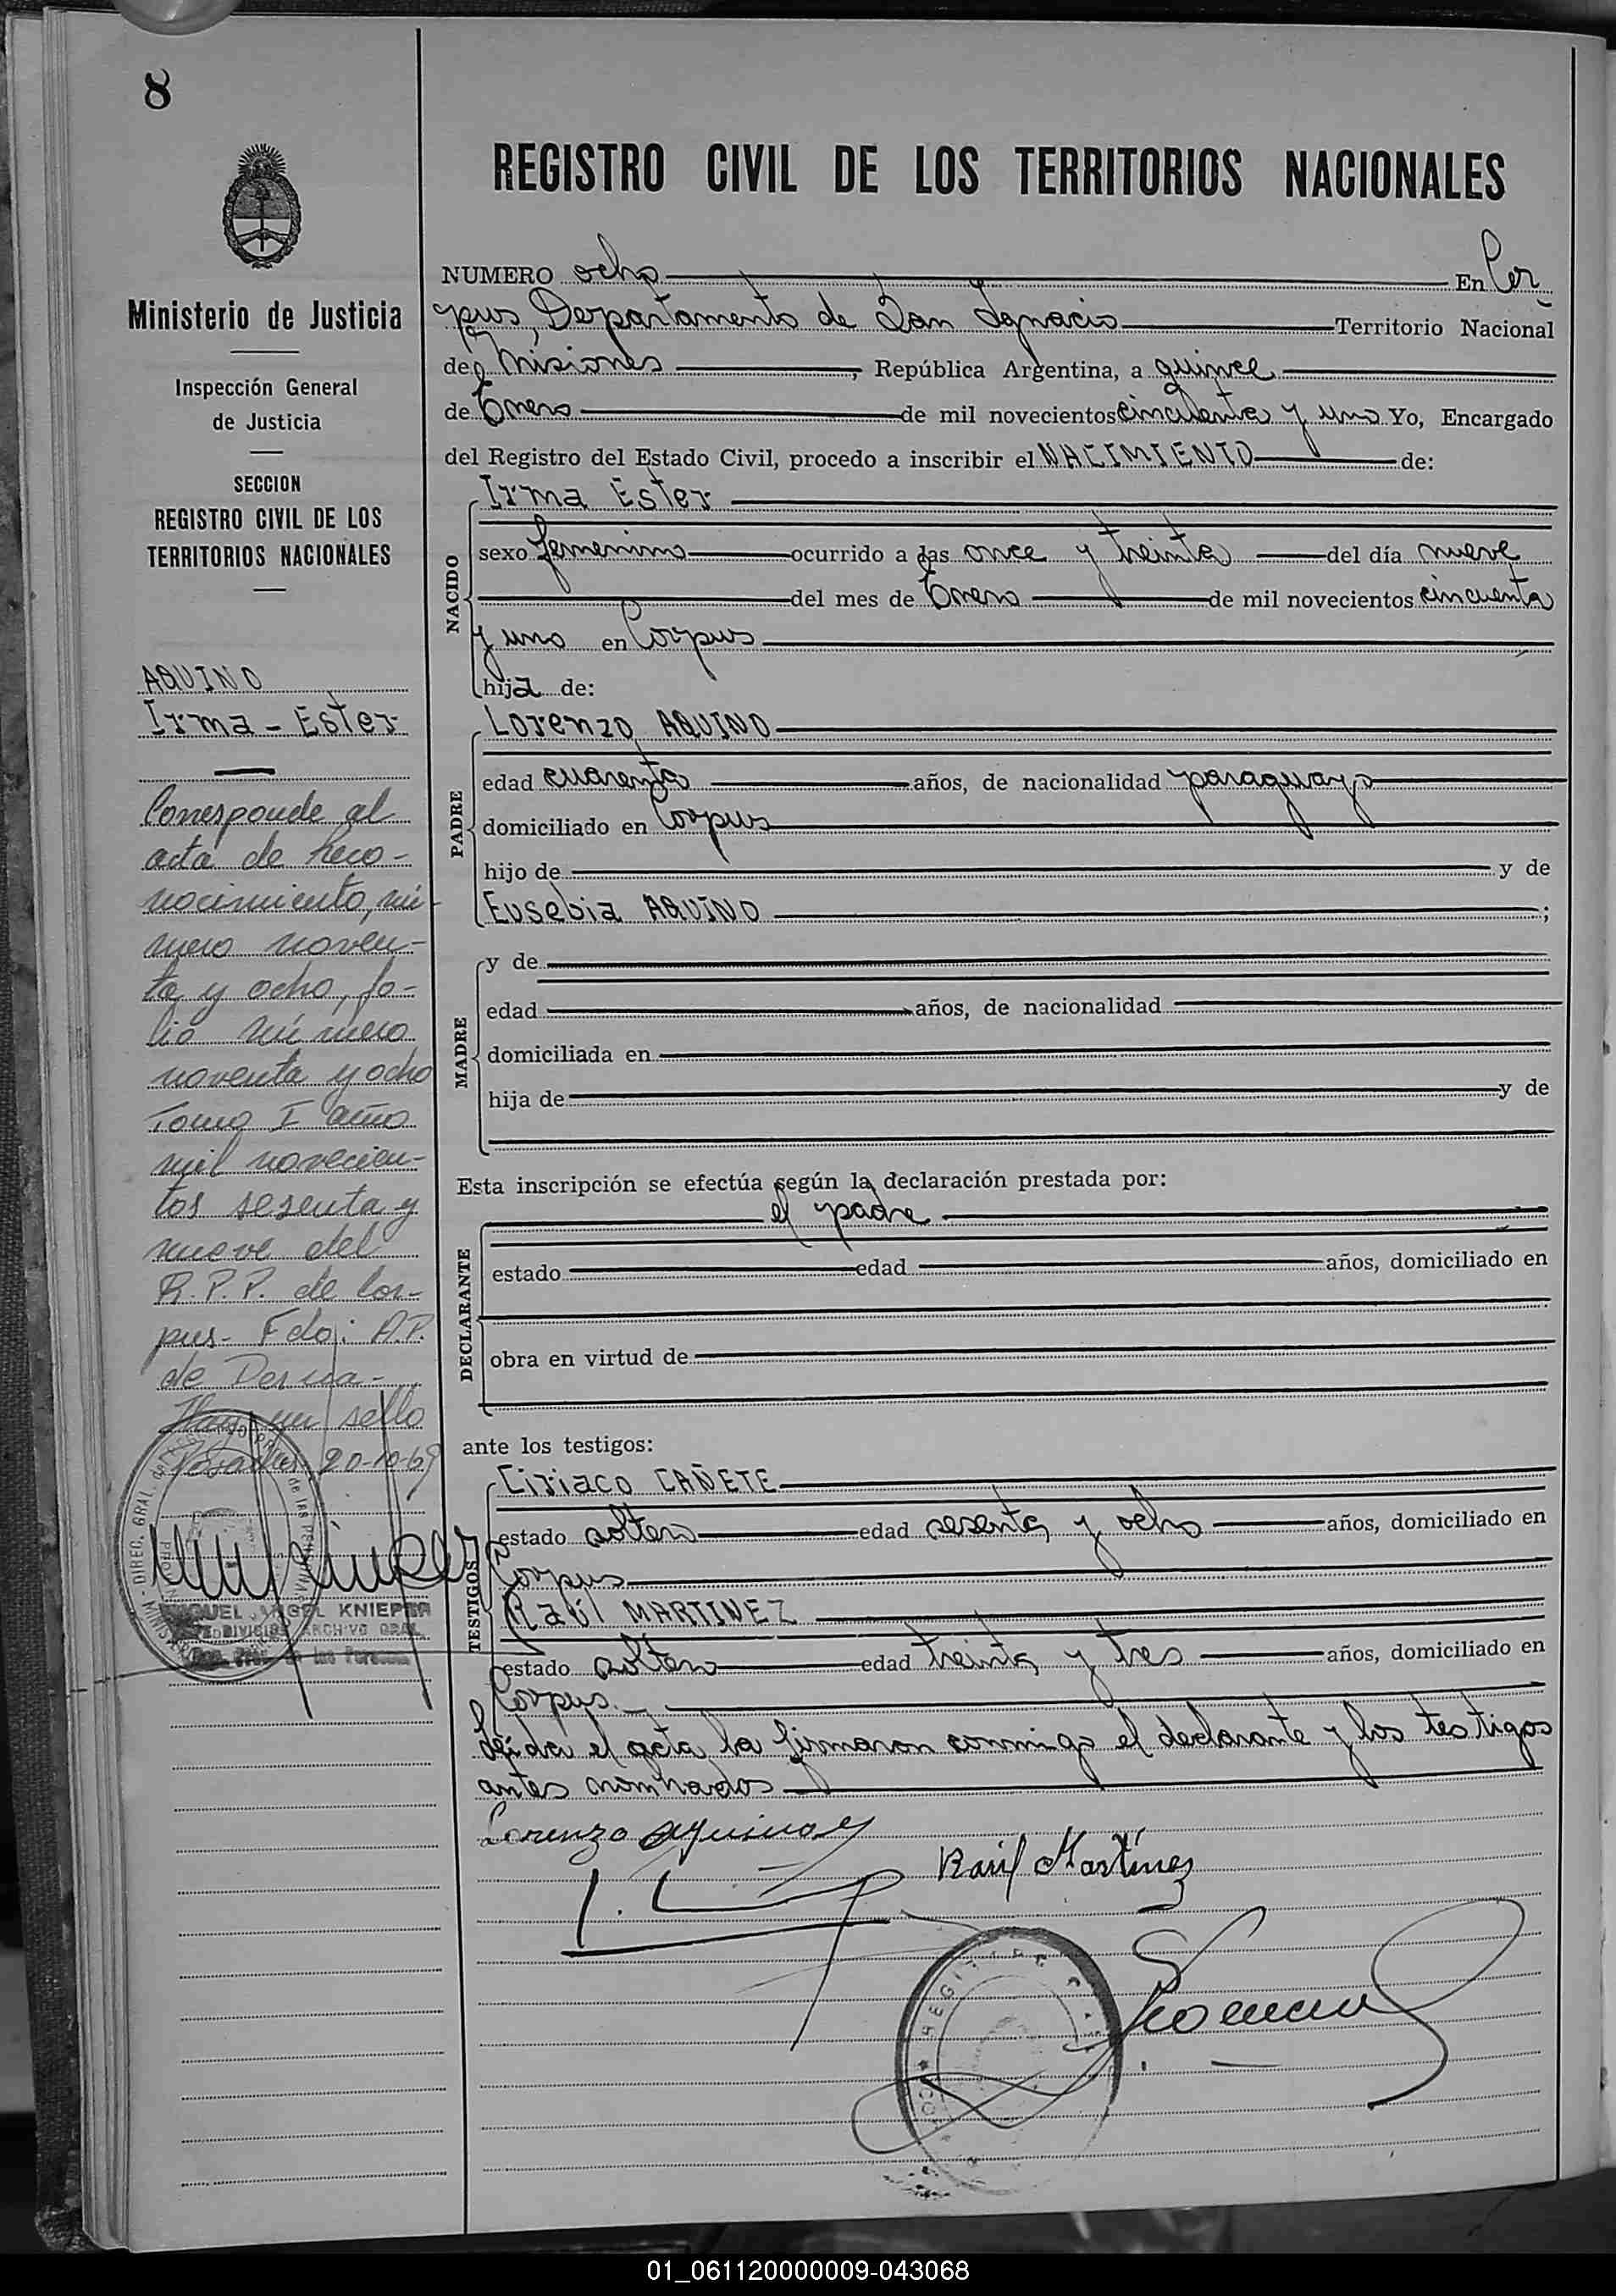 8
REGISTRO CIVIL DE LOS TERRITORIOS NACIONALES
Ministerio de Justicia
Inspección General
de Justicia
SECCION
REGISTRO CIVIL DE LOS
TERRITORIOS NACIONALES
AQUINO
Irma - Ester
Corresponde al
acta de reco-
nocimiento, nú-
mero noven-
ta y ocho, fo-
lio número
noventa y ocho
Tomo I año
mil novecien-
tos sesenta y
nueve del
R.P.P. de Cor-
pus- Fdo: A.P.
de
Hay un sello
Posadas, 20-10-69
DIREC. GRAL. de
MIGUEL ANGEL KNIEPER
DIVISION ARCHIVO GRAL.
de las Personas
NUMERO ocho En Cor
pus, Departamento de San Ignacio Territorio Nacional
de Misiones, República Argentina, a quince
de Enero de mil novecientos cincuenta y uno Yo, Encargado
del Registro del Estado Civil, procedo a inscribir el NACIMIENTO de:
NACIDO
Irma Ester
sexo femenino ocurrido a las once y treinta del día nueve
del mes de Enero de mil novecientos cincuenta
y uno en Corpus
hija de:
PADRE
Lorenzo AQUINO
edad cuarenta años, de nacionalidad paraguayo
domiciliado en Corpus
hijo de y de
Eusebia AQUINO ;
MADRE
y de
edad años, de nacionalidad
domiciliada en
hija de y de
Esta inscripción se efectúa según la declaración prestada por:
el padre
DECLARANTE
estado edad años, domiciliado en
obra en virtud de
ante los testigos:
TESTIGOS
Ciriaco CAÑETE
estado soltero edad sesenta y ocho años, domiciliado en
Corpus
Raúl MARTINEZ
estado soltero edad treinta y tres años, domiciliado en
Corpus.
Leída el acta la firmaron conmigo el declarante y los testigos
antes nombrados
Lorenzo aquino
Raúl Martínez
01_061120000009-043068